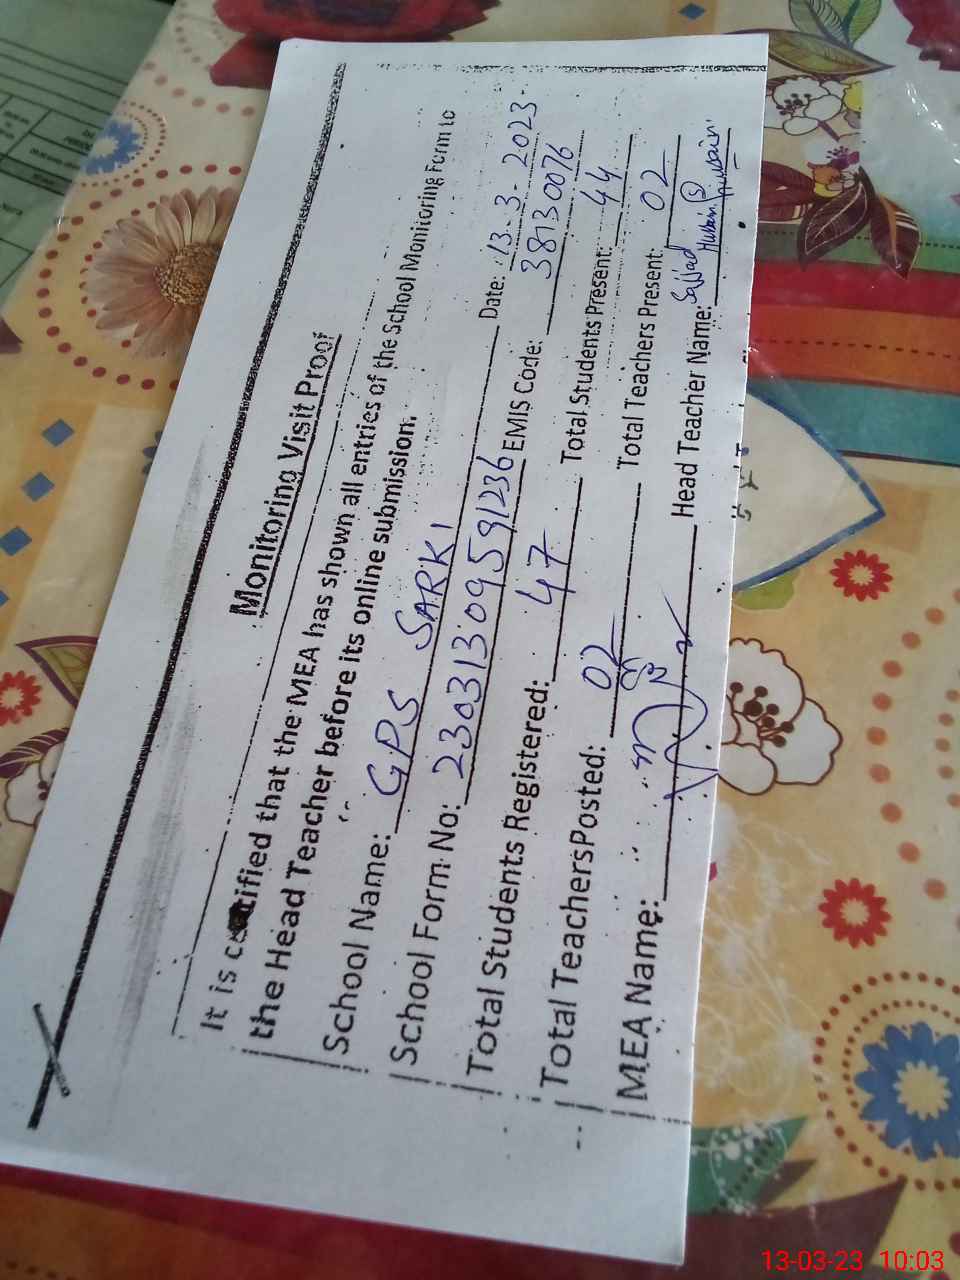 Monitoring Visit Proof
It is certified that the MEA has shown all entries of the School Monitoring Form to
the Head Teacher before its online submission.
School Name: GPS SARKI Date: 13-3-2023
School Form No: 2303131309591236 EMIS Code: 381300 76
Total Students Registered: 47 Total Students Present: 44
Total Teachers Posted: 02 Total Teachers Present: 02
MEA Name: Head Teacher Name: Sajjad Hussain
13-03-23 10:03